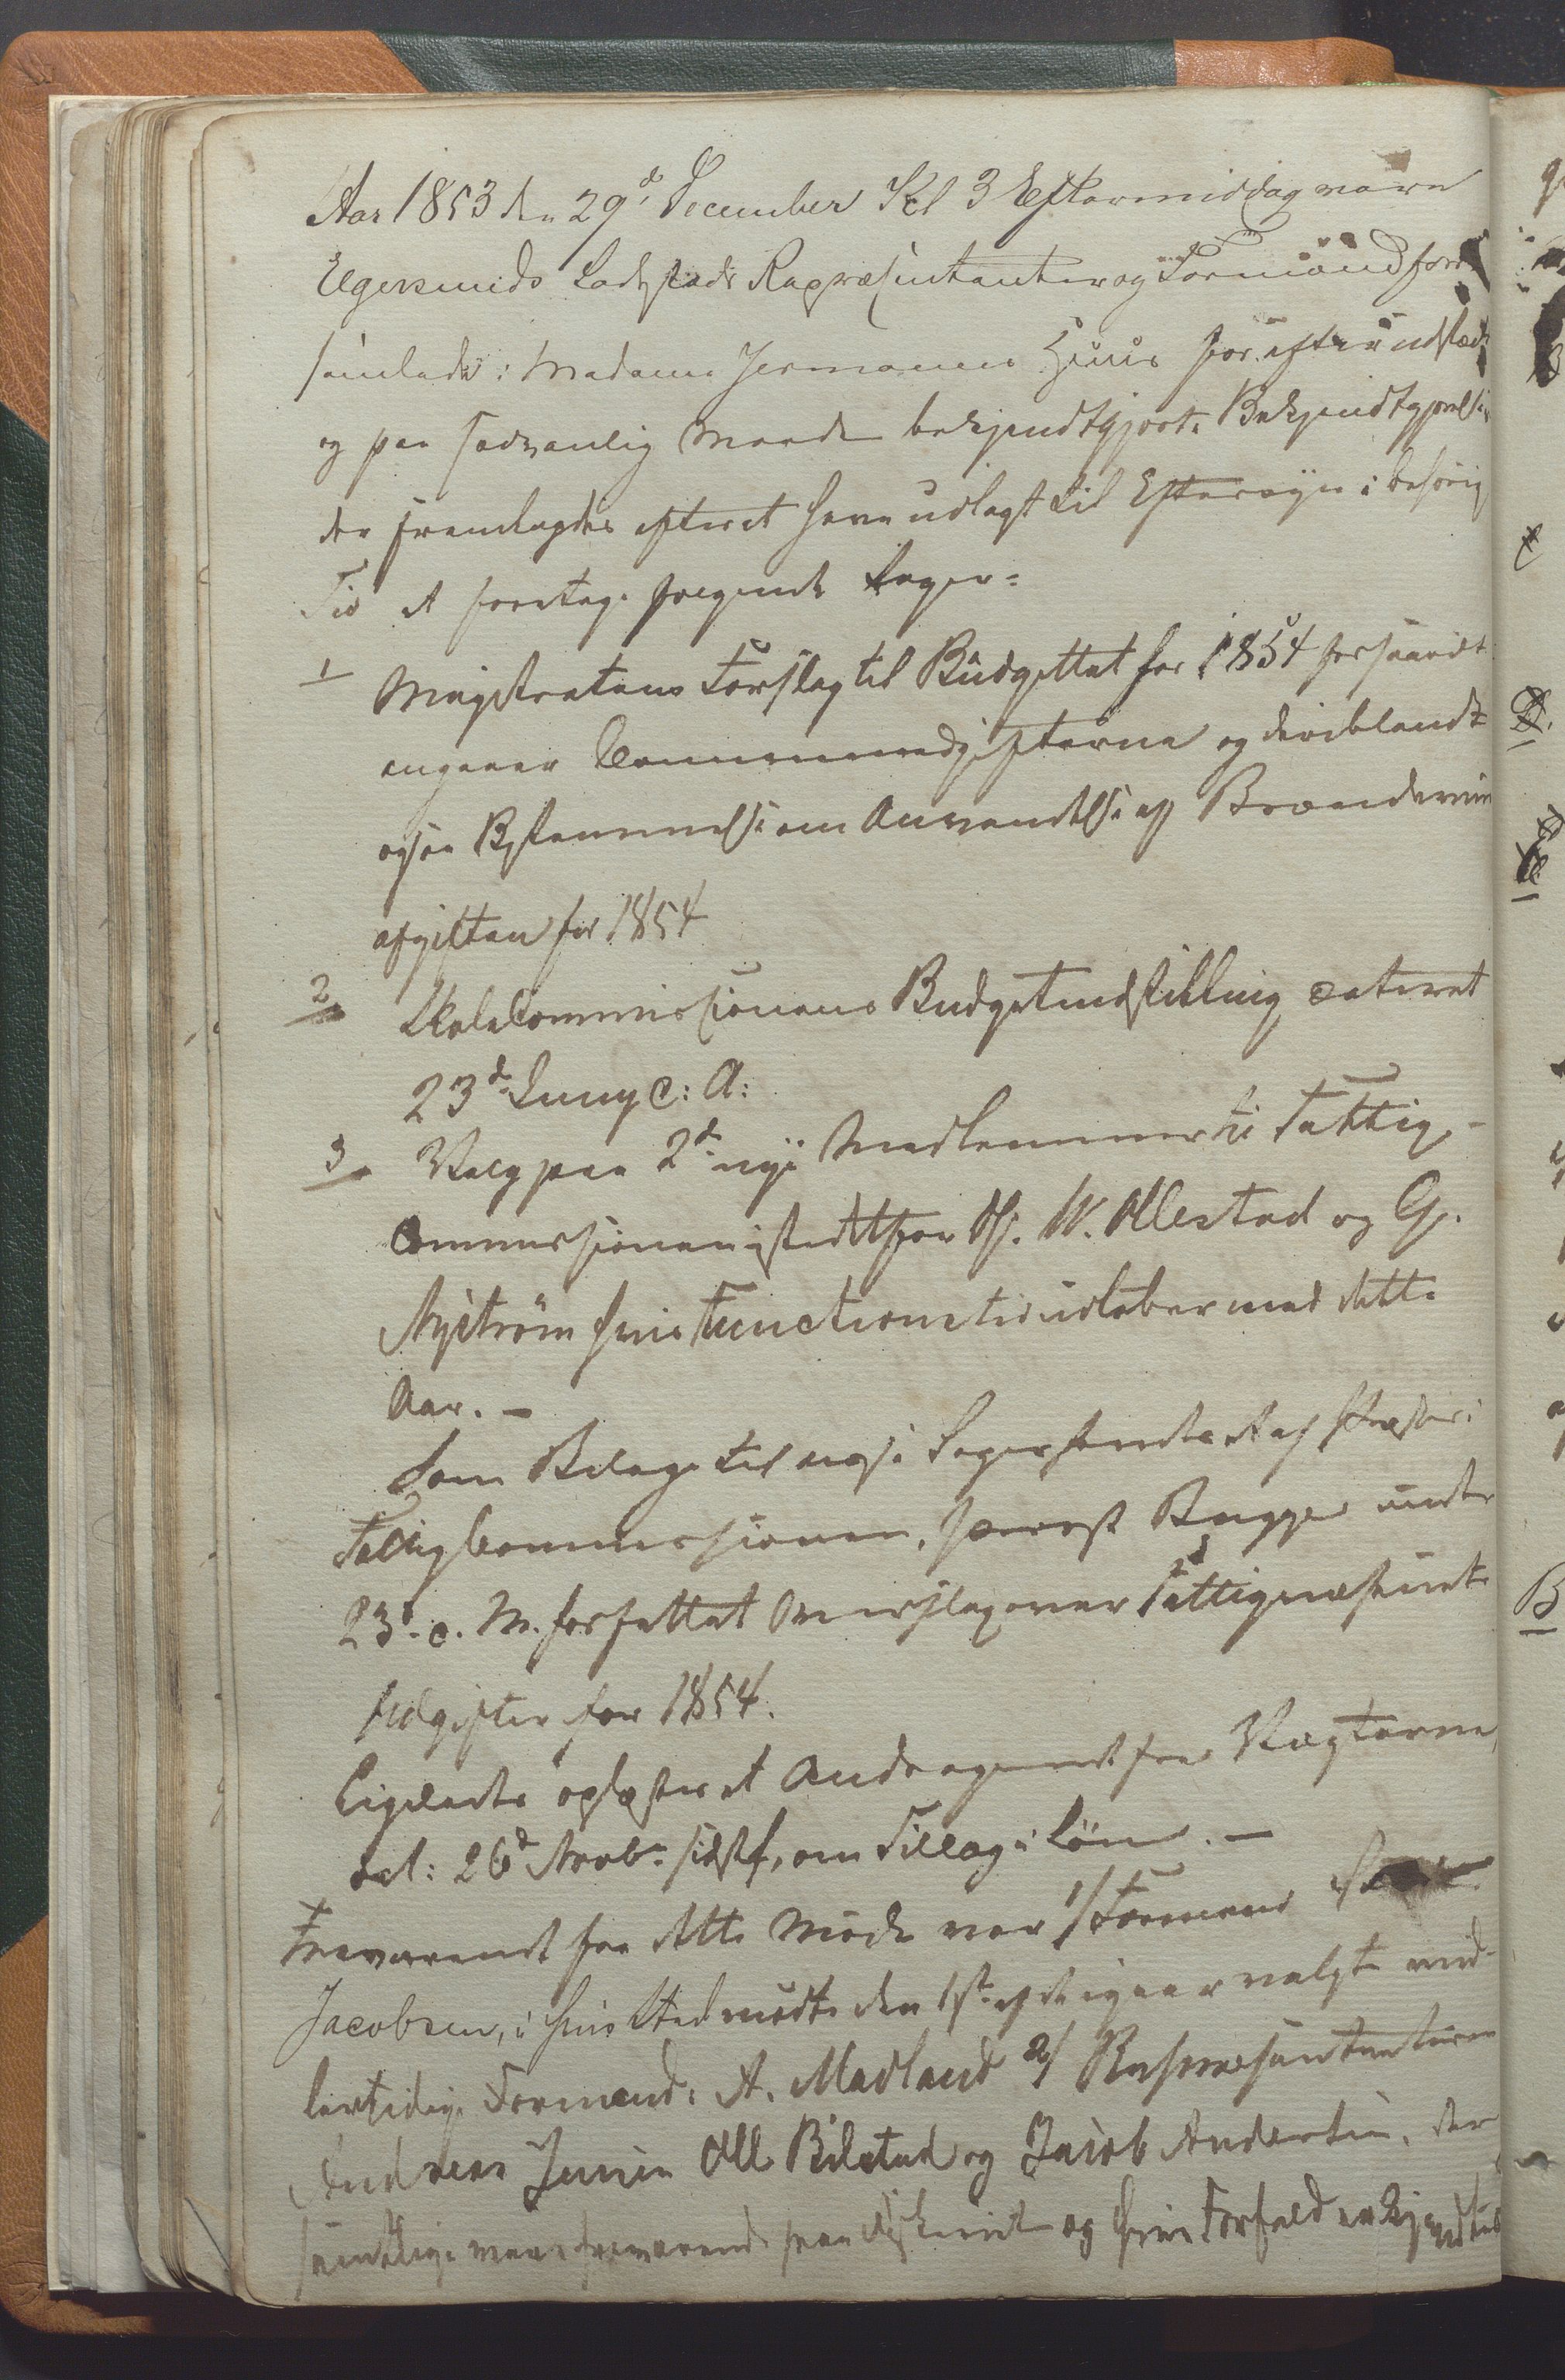 Aar 1853 den 29d December Kl 3 Eftermiddag vare
Egersunds Ladesteds Repræsentanter og Formænd for-
samlede i Madame Jermanns Huus for efter udstædt
og paa sædvanlig Maade bekjendtgjort Bekjendtgjørelse
der fremlagdes efter at have udlagt til Eftersyn i behørig
Tid at foretage følgende Sager:
1 Magistratens Forslag til Budgettet for 1854 forsaavidt
angaaer Communeudgifterne og deriblandt
ogsaa Bestemmelse om Anvendelse af Brændeviin
afgiften for 1854
2 Skolecommissionens Budgetindstilling dateret
23d Juny C: A:
3 Valg paa 2de nye Medlemmer til Fattig-
Commissionen istedetfor W. Ollestad og G.
Nyström hvis Functionstid udløber med dette
Aar. –
Som Bilage til Sager af
Fattigcommissionen, under
23d c. M. forfattet Overslag over Fattigvæsenets
Udgifter for 1854.
Ligeledes oplæstes et Andragende fra Vægterne,
dat: 26d Novbr sidstl, om Tillæg i Løn. –
Fraværende fra dette Møde var 1/ Formand
Jacobsen, i hvis Sted mødte den 1ste af de igaar valgte mid-
lertidige Formænd: A. Madland 2/ Repræsentanterne
Andreas Jensen Oll Bilstad og Jacob Andersen, der
samtlige vare fraværende paa og hvis Forfald ankjendtes